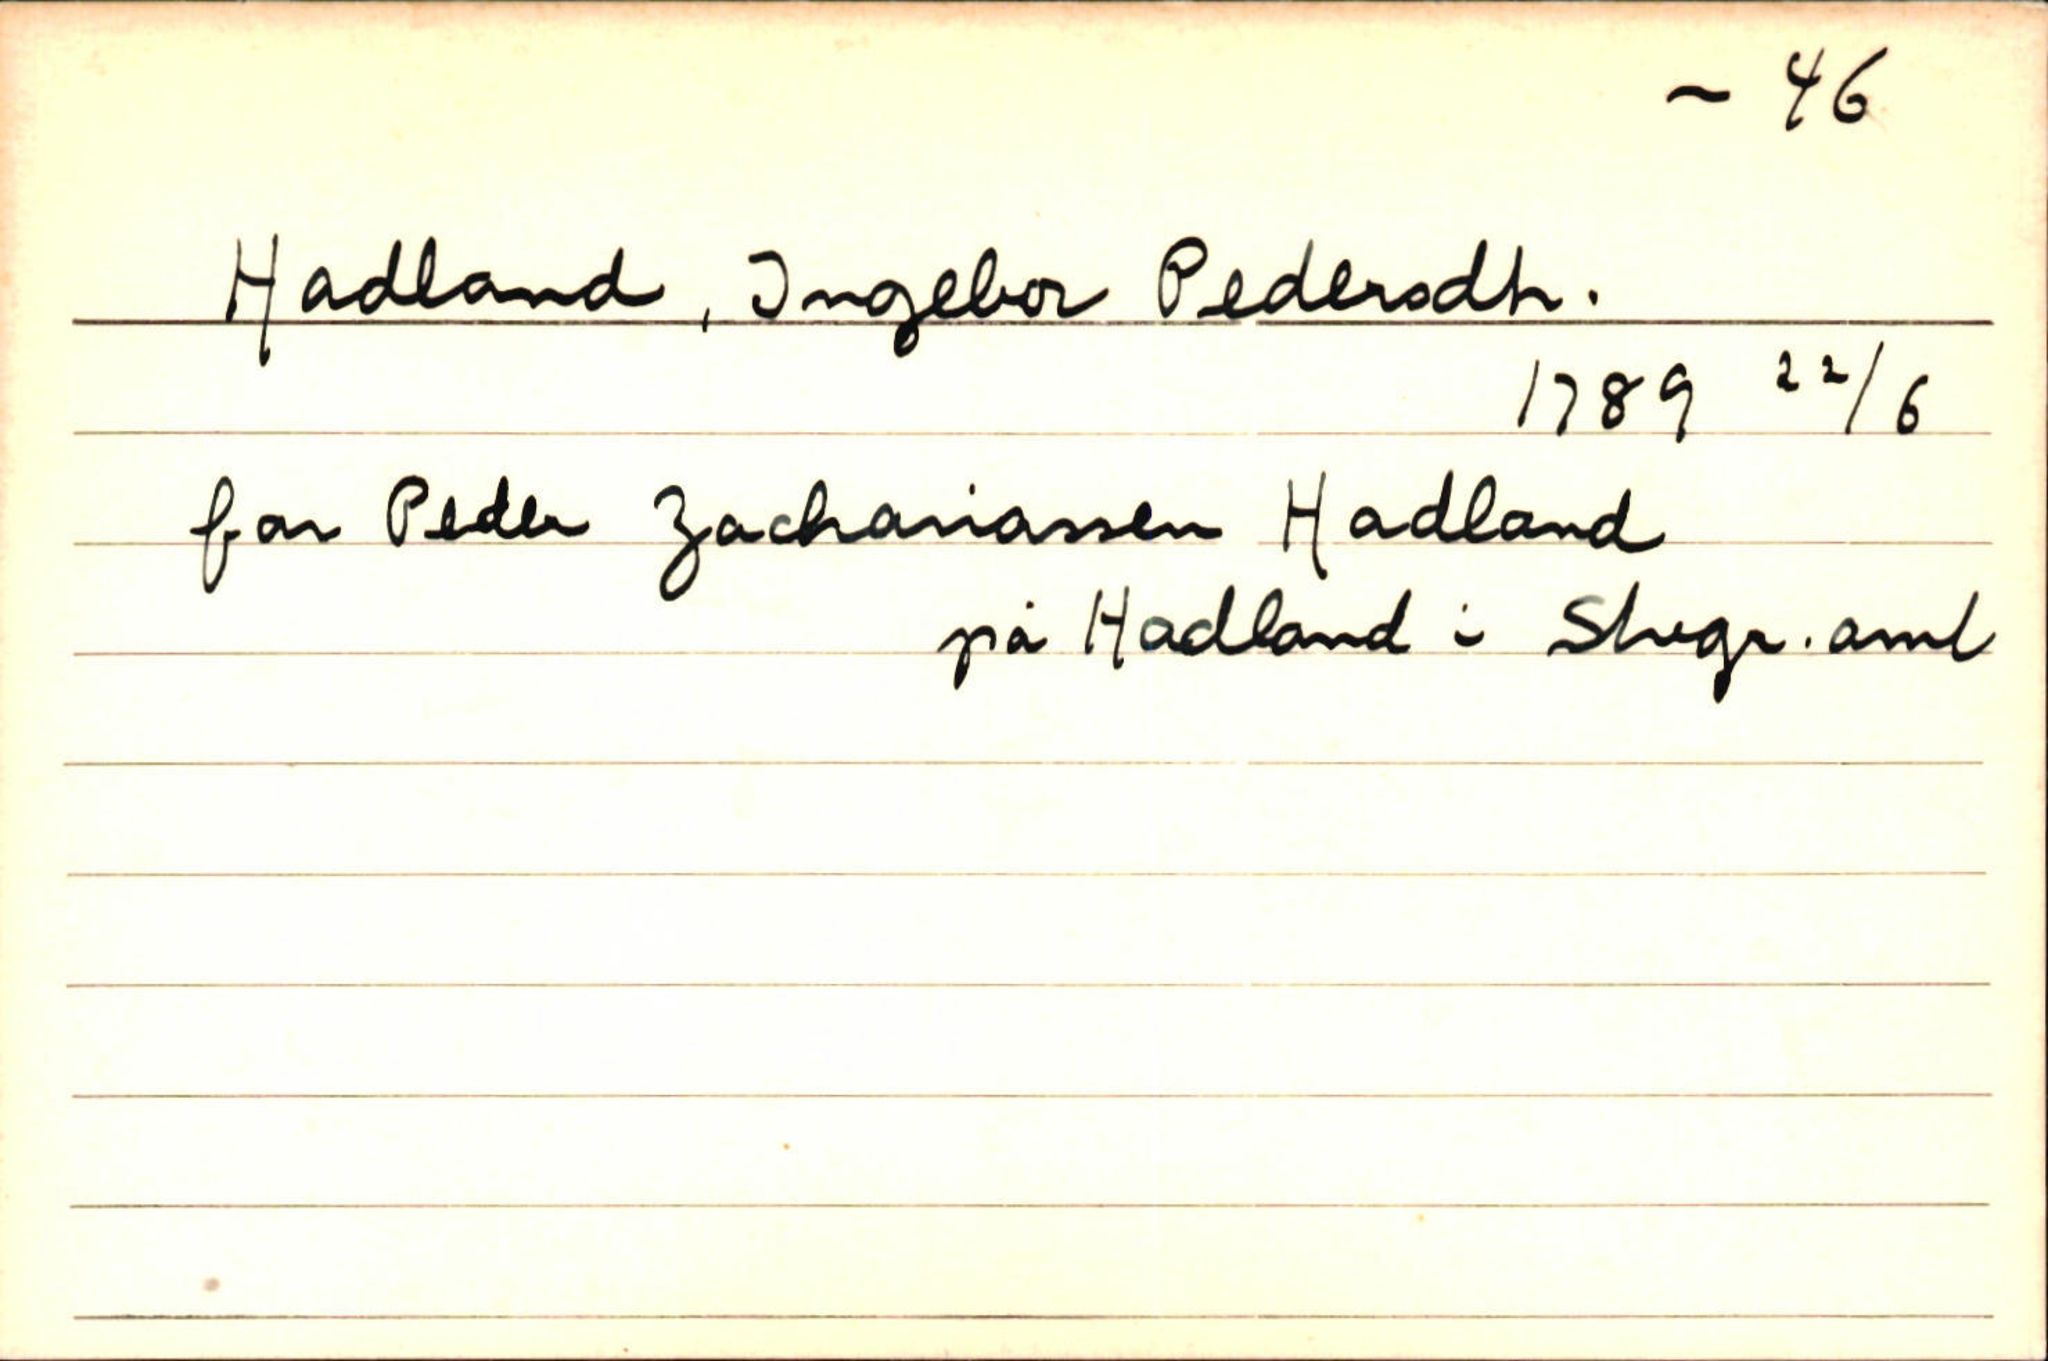 ~ 46
Hadland, Ingebor Pedersdtr.
1789 22/6
far Peder Zachariassen Hadland
på Hadland i Stvgr. amt